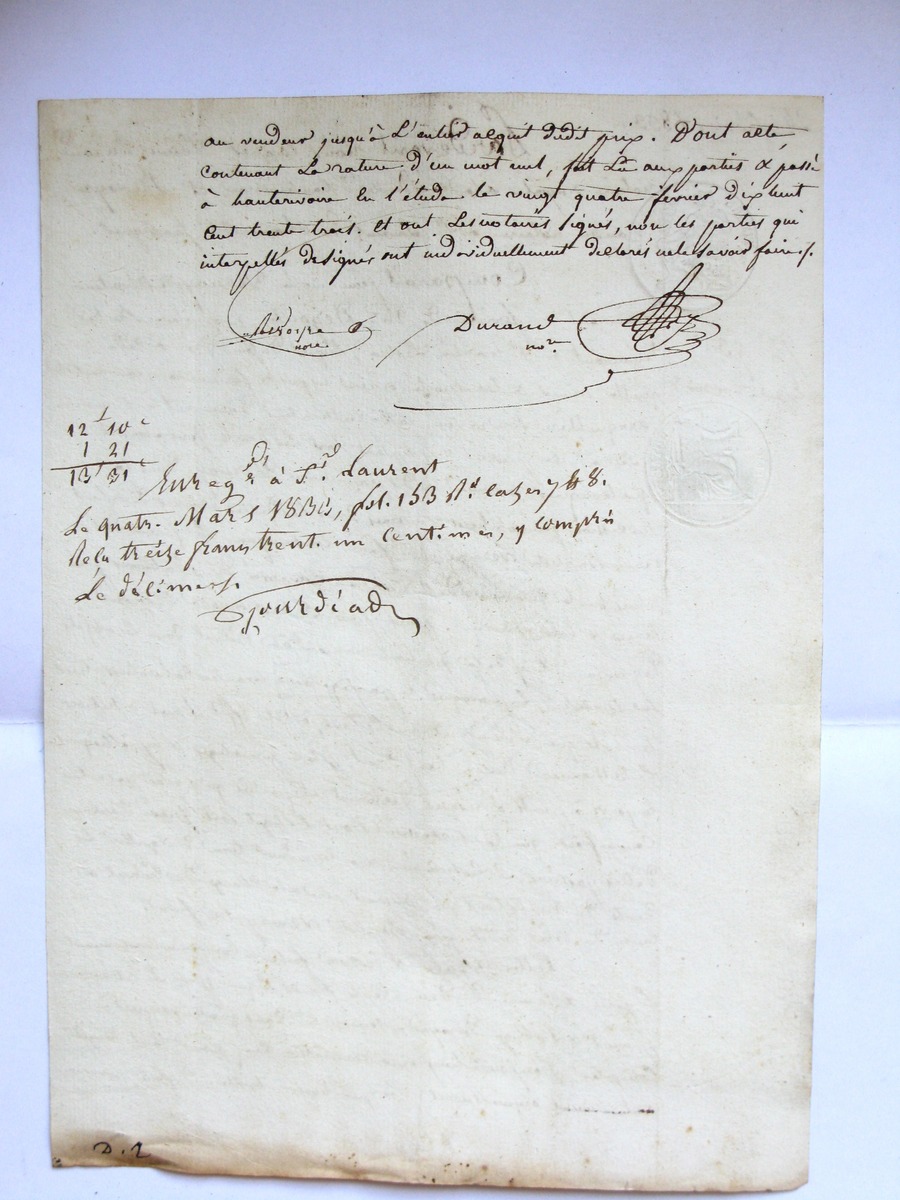 au vendeur jusqu'à L'entier acquit dudit prix. Dont acte,
contenant la rature d'un mot nul, fut Lu aux parties & passé
à hauterivoire En l'étude le vingt quatre fevrier dix huit
Cent trente trois. Et ont Les notaires signés, non les parties qui
interpellés de signer ont individuellement declarés ne le savoir faire ./.
nore
Durand
nore
12f 10c
1 21
13f 31c
Enregré à St. Laurent
Le quatre Mars 1833, fol. 153 Ro. cases 7 & 8.
Recu treize francs trent un Centimes, y compris
Le décime ./.
Jourdiad
D. 2